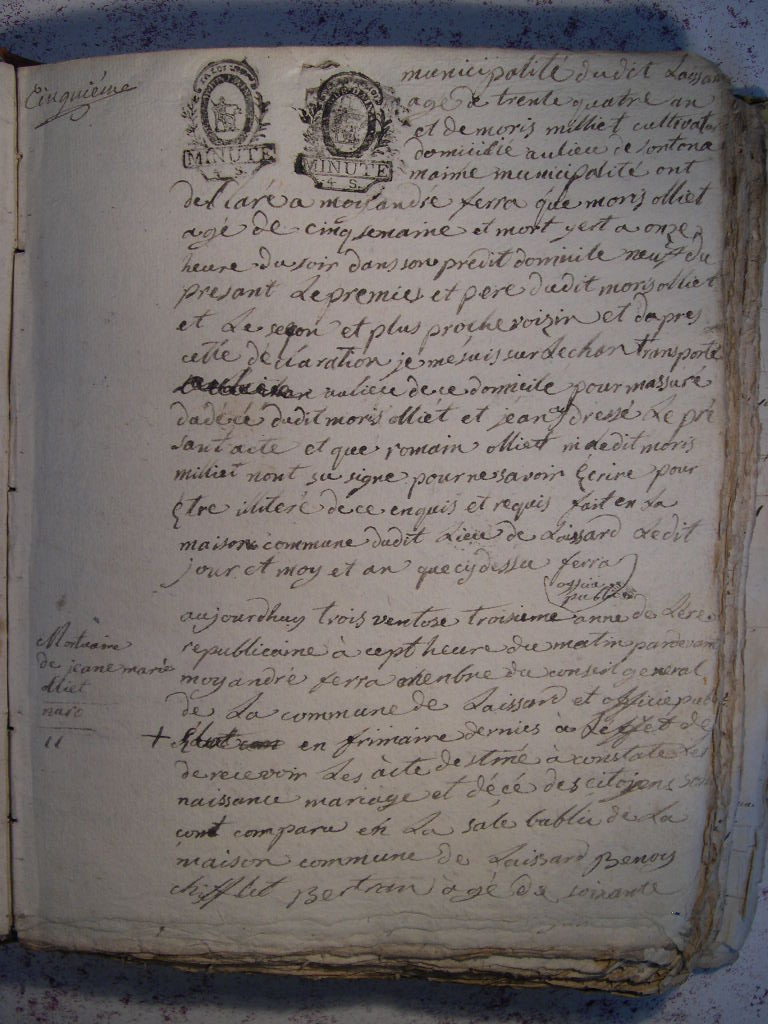 Cinquiéme
MINUTE
4 S.
MINUTE
4 S.
municipalité dudit Laissard
agé de trente quatre an
et de moris milliet cultivateur
domicilié aulieu de sontona
maime municipalité ont
declaré a moy andré ferra que moris olliet
agé de cinq semaine et mort yert a onze
heure du soir dans son predit domicile neuf du
presant Le premier et pere dudit moris olliet
et Le segon et plus proche voizin et dapres
cette déclaration je me suis sur Lechan transporté
aulieu de ce domicile pour massuré
dudécé dudit moris olliet et jean ay dressé Le pré
sant acte et que romain olliet
milliet nont su signe pour ne savoir Ecrire pour
Etre ilitere de ce enquis et requis fait en La
maison commune dudit Lieu de Laissard Ledit
jour et moy et an que cydessu ferra
officier
public
aujourdhuy trois ventose troisieme anne de Lere
republicaine à cept heure du matin pardevant
moy andré ferra menbre du conseil general
de La commune de Laissard et officié pub
+ en frimaire dernier à Leffet de
de recevoir Les acte destiné à constate Les
naissance mariage et décé des citoyens
cont comparu en La sale publié de La
maison commune de Laissard Benoy
chifflet Bertran agé de soixante
Mortuaire
de jeane marie
olliet
naro
11